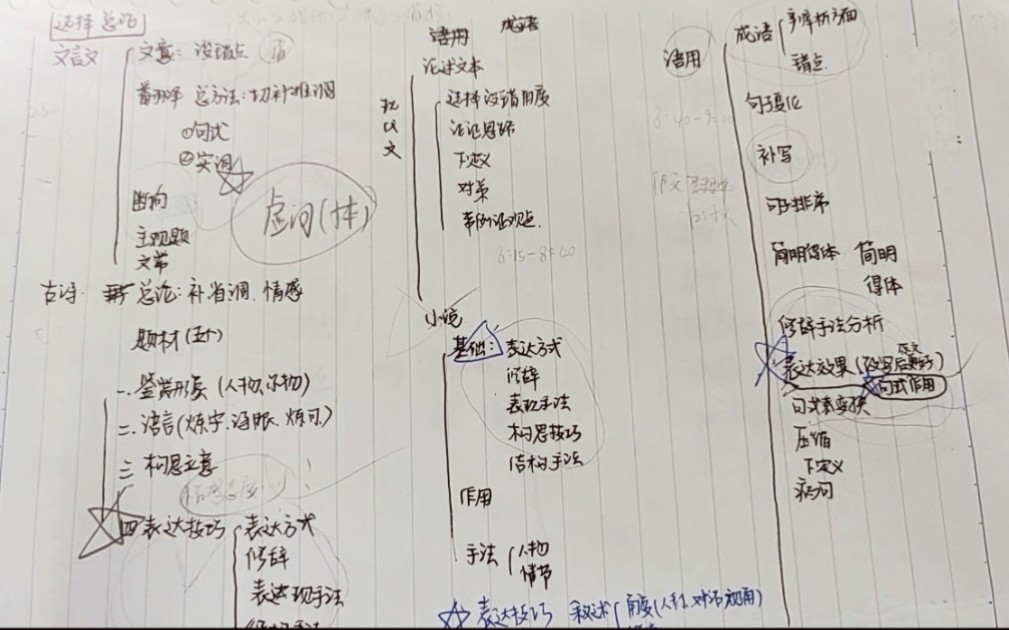 选择 总论
文言文
文意：设错点
翻译 总方法：切补推调
①句式
②实词
虚词(18)
断句
主观题
文常
古诗
总论：补省调.情感
题材(五个)
一.鉴赏形象(人物.景物)
二.语言(炼字.诗眼.炼句)
三 构思立意
四 表达技巧
表达方式
修辞
表达现手法
结构手法
语用 成语
现代文
论述文本
选择设错角度
论证思路
下定义
对策
事例证观点.
8:15-8:40
小说
基础：表达方式
修辞
表现手法
构思技巧
结构手法
作用
手法
人物
情节
表达技巧 叙述 角度(人称.对话.视角)
语用
成语
错点
句子变化
补写
句子排序
简明得体 简明
得体
修辞手法分析
表达效果(改写后更巧) 原文
句式作用
句式变换
压缩
下定义
病句
8:40-9:00